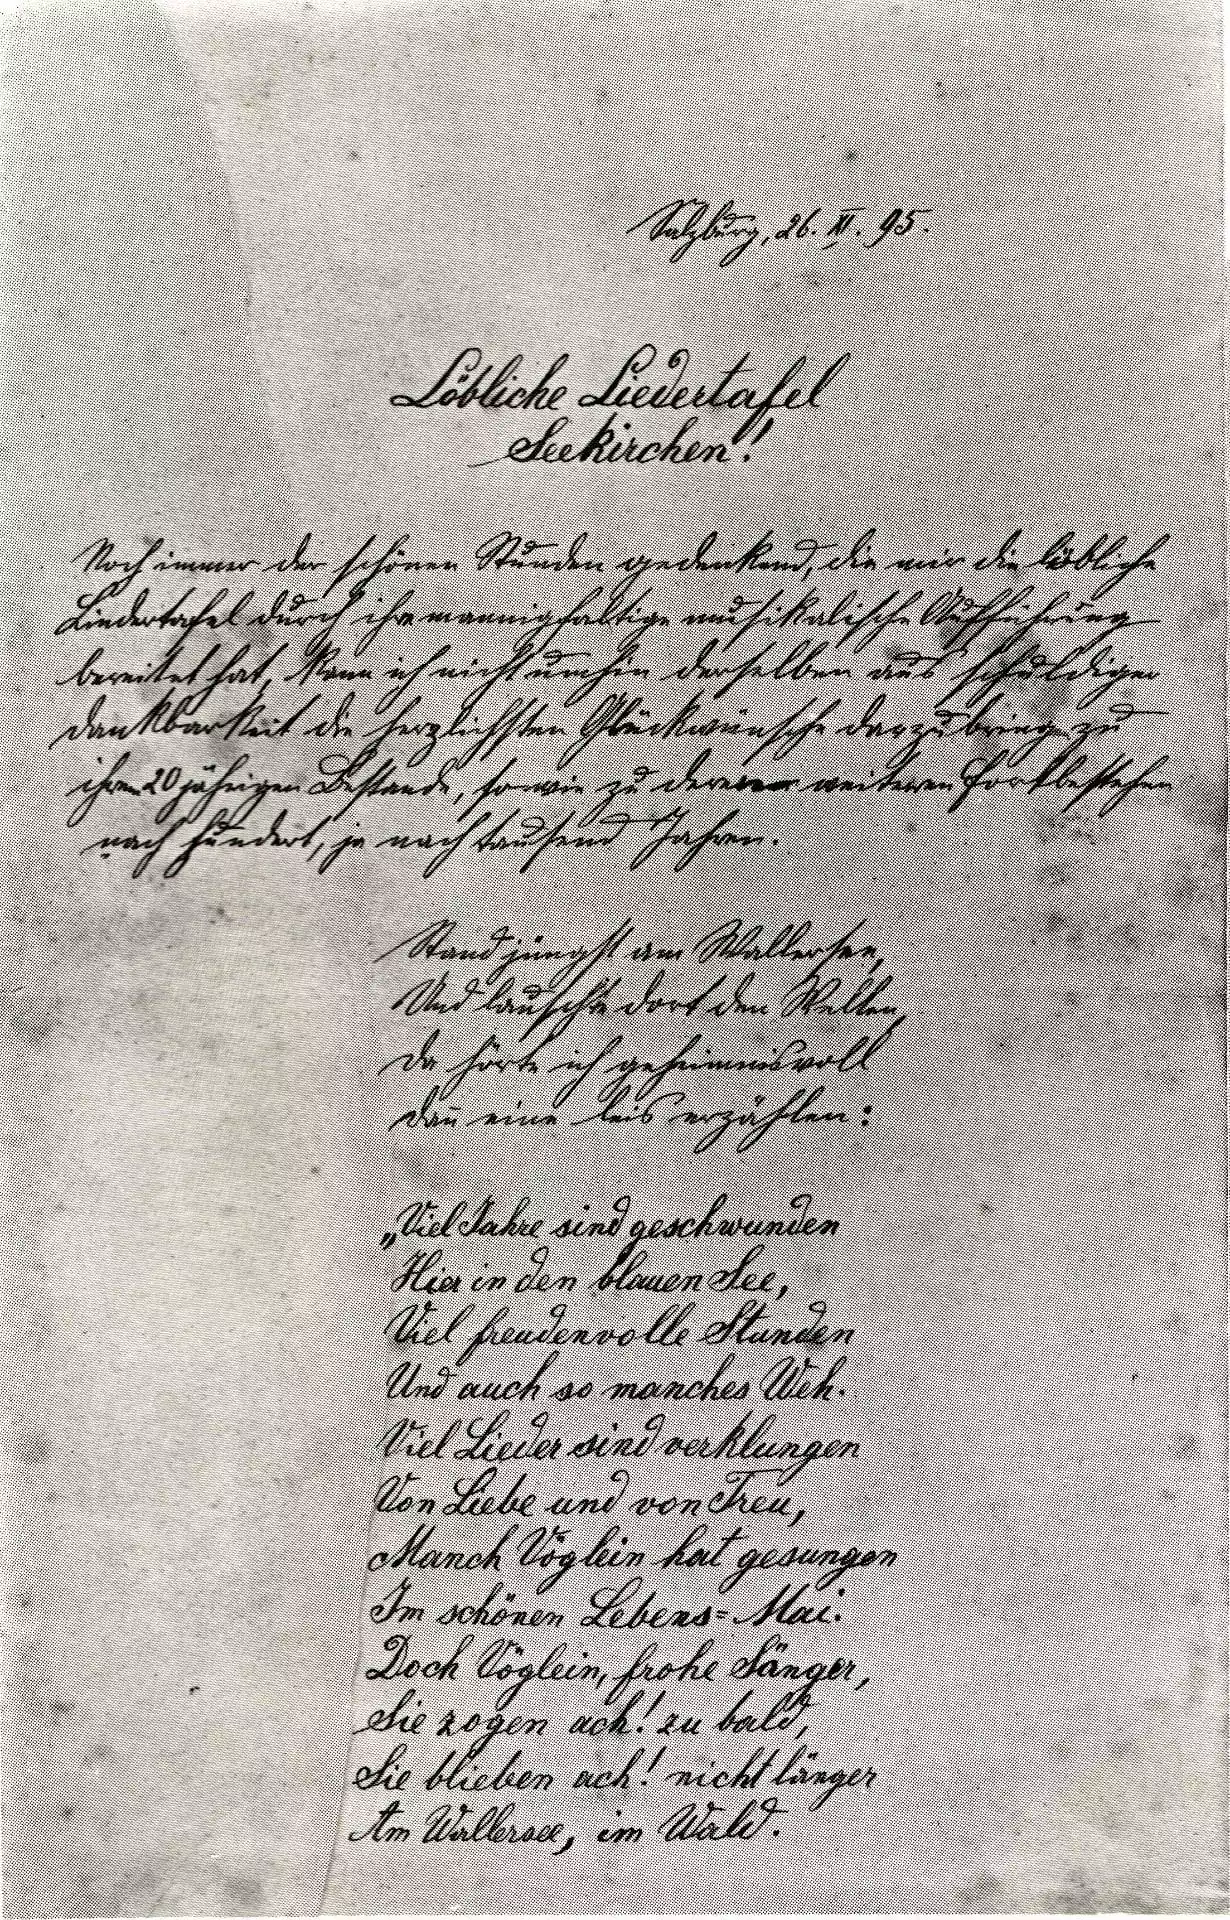 Salzburg, 26. XI. 95.
Löbliche Liedertafel
Seekirchen!
Noch immer der schönen Stunden gedenkend, die mir die löbliche
Liedertafel durch ihre mannigfaltige musikalische Aufführung
bereitet hat, kann ich nicht umhin derselben aus schuldiger
Dankbarkeit die herzlichsten Glückwünsche darzubringen zu
ihrem 20 jährigen Bestande, sowie zu deren weiteren Fortbestehen
nach hundert, ja nach tausend Jahren.
Stand jüngst am Wallersee,
Und lauschte dort den Wellen,
Da hörte ich geheimnisvoll
Dañ eine leis erzählen:
„Viel Jahre sind geschwunden
Hier in den blauen See,
Viel freudenvolle Stunden
Und auch so manches Weh.
Viel Lieder sind verklungen
Von Liebe und von Treu,
Manch Vöglein hat gesungen
Im schönen Lebens=Mai.
Doch Vöglein, frohe Sänger,
Sie zogen ach! zu bald,
Sie blieben ach! nicht länger
Am Wallersee, im Wald.